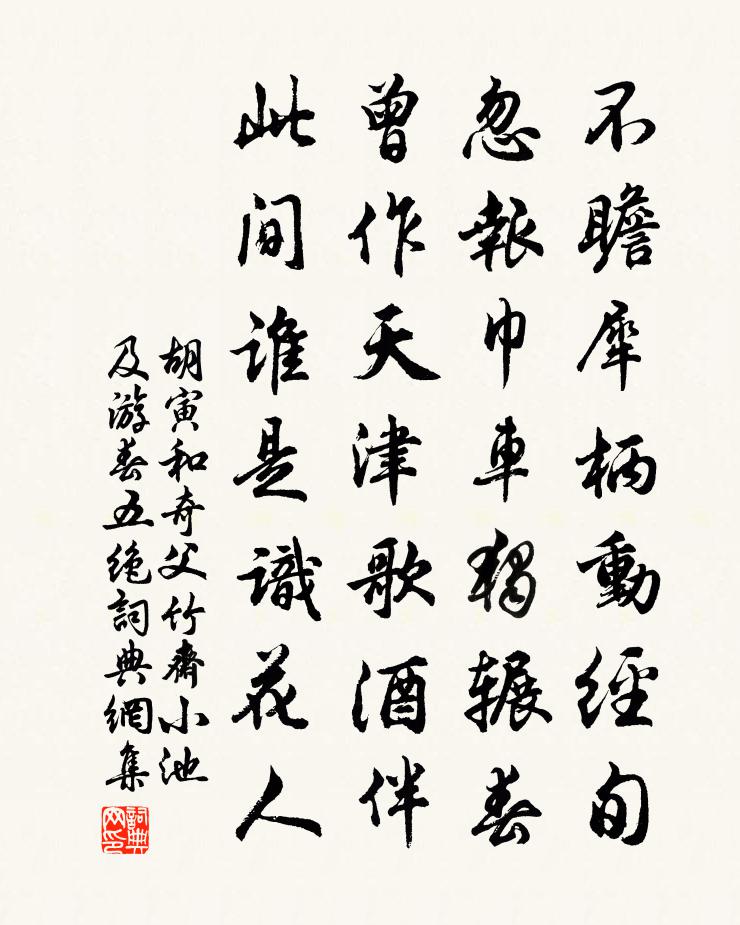 不瞻犀柄動經旬
忽報巾車獨輾春
曾作天津歌酒伴
此间誰是識花人
胡寅和奇父竹齋小池
及游春五绝詞典網集
詞典网印